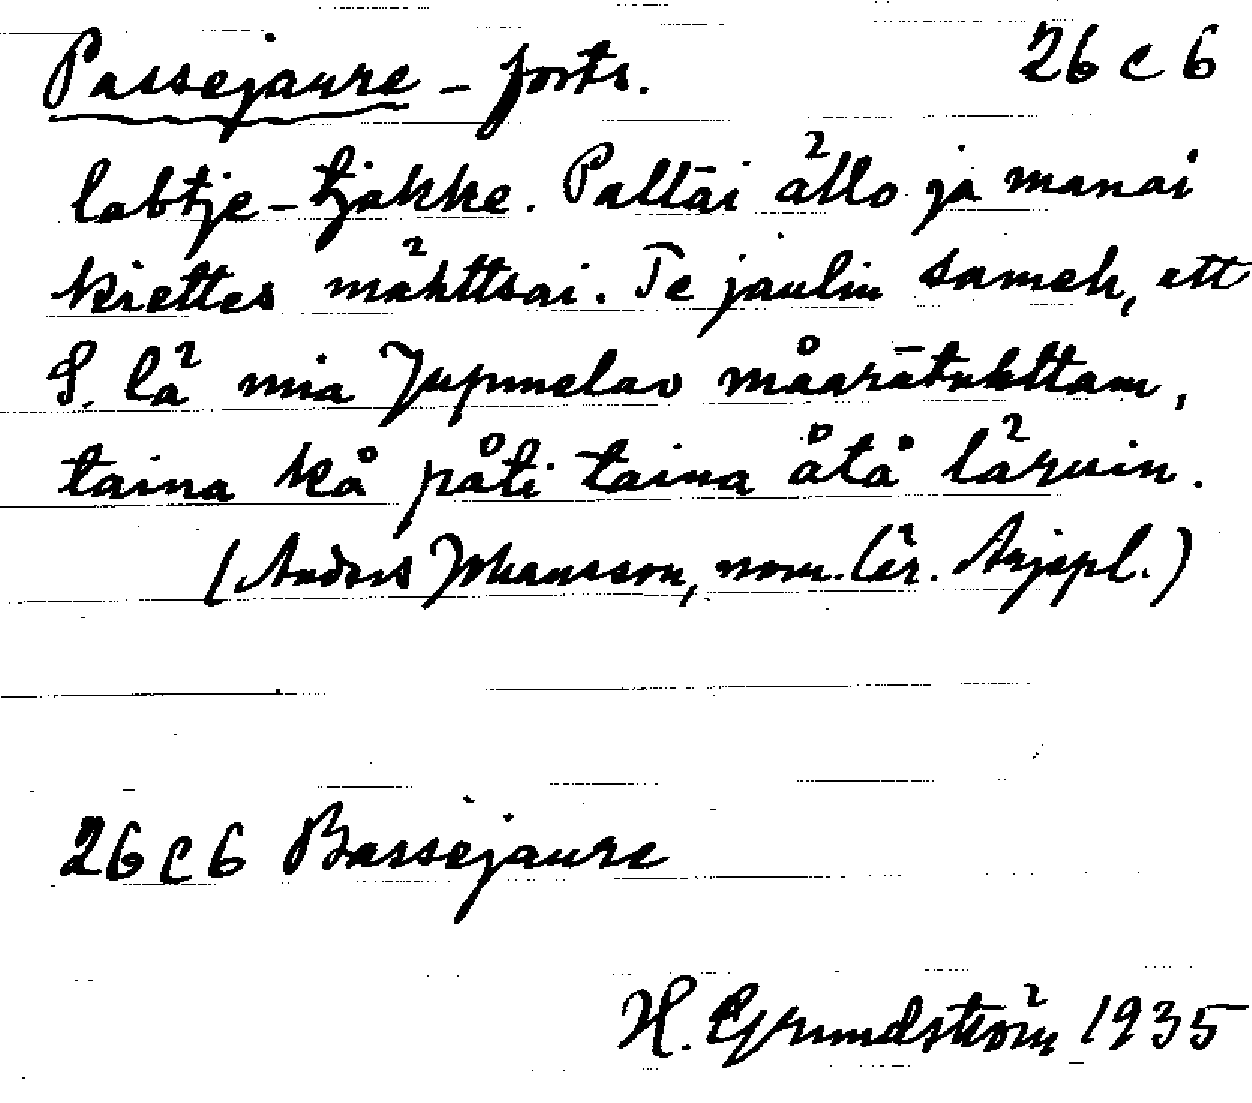 Passejaure - forts. 26 C 6
labtje-tjåkke. Pallāi ällo ja manai
kiettes mähttsai. Te jaulin sameh, ett
S. lä mia Jupmelav måarātuhttam,
taina kå påti taina åtå läruin.
(Anders Johansson, nom. lär. Arjepl.)
26 C 6 Bassejaure
H. Grundström 1935